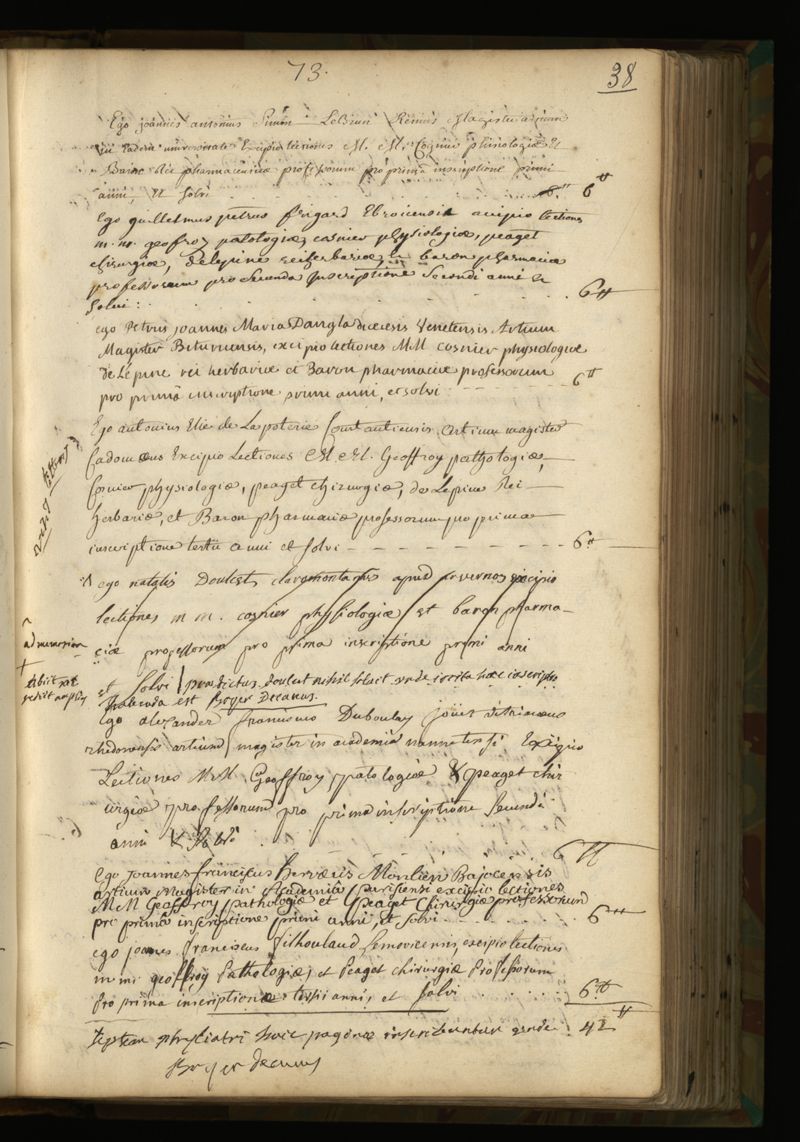 73.
38
Ego joannes antonius Simon LeBrun Remus Magister artium
in Eadem universitate Excipio lectiones M. M. Cosnier phisiologiæ Et
Baron Rei pharmaceuticæ professorum pro prima inscriptione primi
anni, et solvi 6tt
Ego guillelmus petrus frigard Ebroicensis acipio lectiones
m. m. geofroy patologiæ, cosnier physiologiæ, peaget
chirurgiæ, Delepine rei herbariæ, & baron pharmaciæ
professorum pro Secunda Inscriptione Secondi anni &
Solvi : 6tt
ego Petrus joannes Maria Dangla diœcesis Venetensis Artium
Magister Bituricensis, excipio lectiones M M cosnier physiologiæ
de Lépine rei herbariæ et Baron pharmaciæ professorum
pro primâ inscriptione primi anni, et solvi 6tt
Ego antonius Elie de La poterie Constantiensis Artium magister
Cadomæus Excipio Lectiones M. M. Geoffroy pathologiæ,
Cosnier physiologiæ, peaget chirurgiæ, de Lepine Rei
herbariæ, et Baron pharmaciæ professorum pro prima
inscriptione tertii anni et solvi 6tt
ego natalis Doulcet claromontanus apud arvernos excipio
lectiones m m. cosnier physiologiæ et baron pharma-
ciæ professorum pro prima inscriptione primi anni
et Solvi / prædictus doulcet nihil solvit unde irrita hæc inscriptio
habenda est Boyer Decanus.
Ego alexander franciscus Duboulay
rhedonensis artium magister in academiâ nannetensi Excipio
Lectiones M. M. Geoffroy patologiæ & peaget chir
urgiæ professorum pro primâ inscriptione Secundi
anni & solvi 6tt
Ego joannes franciscus hervæus Monlien Bajocensis
artium Magister in Academiâ parisiensi excipio lectiones
M M Geoffroy pathologiæ et Peaget Chirurgiæ professorum
pro primâ inscriptione primi anni, et solvi 6tt
ego joannes franciscus Lemovicensis, excipio lectiones
m m. geoffroy Pathologiæ, et Peaget chirurgiæ Professorum
Pro prima inscriptione tertii anni, et Solvi 6tt
Septem phyliatri huic paginæ inscribuntur unde 42tt
Boyer decanus